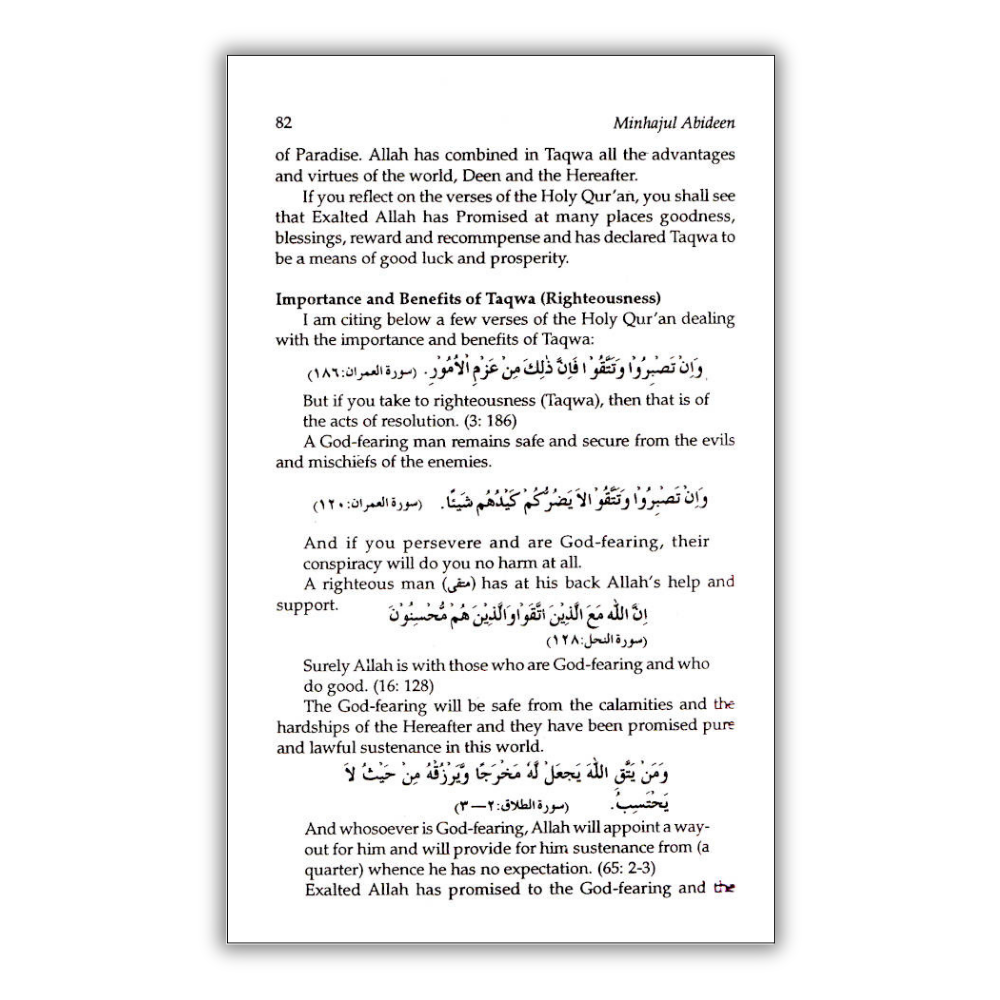 82 Minhajul Abideen
of Paradise. Allah has combined in Taqwa all the advantages
and virtues of the world, Deen and the Hereafter.
If you reflect on the verses of the Holy Qur'an, you shall see
that Exalted Allah has Promised at many places goodness,
blessings, reward and recommpense and has declared Taqwa to
be a means of good luck and prosperity.
Importance and Benefits of Taqwa (Righteousness)
I am citing below a few verses of the Holy Qur'an dealing
with the importance and benefits of Taqwa:
وَاِنْ تَصْبِرُوْا وَتَتَّقُوْا فَاِنَّ ذٰلِكَ مِنْ عَزْمِ الْاُمُوْرِ. (سورة العمران:١٨٦)
But if you take to righteousness (Taqwa), then that is of
the acts of resolution. (3: 186)
A God-fearing man remains safe and secure from the evils
and mischiefs of the enemies.
وَاِنْ تَصْبِرُوْا وَتَتَّقُوْ الاَ يَضُرُّكُمْ كَيْدُهُم شَيْئًا. (سورة العمران:١٢٠)
And if you persevere and are God-fearing, their
conspiracy will do you no harm at all.
A righteous man (متقى) has at his back Allah's help and
support.
اِنَّ اللّٰهَ مَعَ الَّذِيْنَ اتَّقَوْاوَالَّذِيْنَ هُمْ مُّحْسِنُوْنَ
(سورة النحل:١٢٨)
Surely Allah is with those who are God-fearing and who
do good. (16: 128)
The God-fearing will be safe from the calamities and the
hardships of the Hereafter and they have been promised pure
and lawful sustenance in this world.
وَمَنْ يَتَّقِ اللّٰهَ يَجعَلْ لَّهٗ مَخْرَجًا وَّيَرْزُقْهُ مِنْ حَيْثُ لاَ
يَحْتَسِبُ. (سورة الطلاق:٢—٣)
And whosoever is God-fearing, Allah will appoint a way-
out for him and will provide for him sustenance from (a
quarter) whence he has no expectation. (65: 2-3)
Exalted Allah has promised to the God-fearing and the